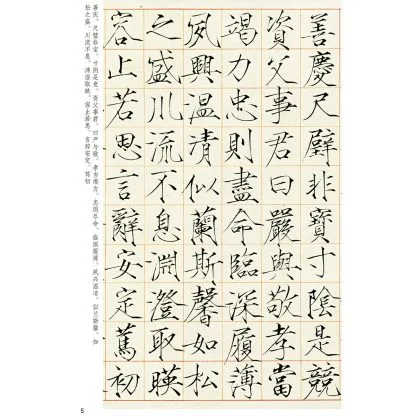 善慶尺璧非寶寸陰是競
資父事君曰嚴與敬孝當
竭力忠則盡命臨深履薄
夙興温清似蘭斯馨如松
之盛川流不息淵澄取暎
容止若思言辭安定篤初
善庆。尺璧非宝，寸阴是竞。资父事君，曰严与敬。孝当竭力，忠则尽命。临深履薄，夙兴温凊。似兰斯馨，如
松之盛。川流不息，渊澄取映。容止若思，言辞安定。笃初
5